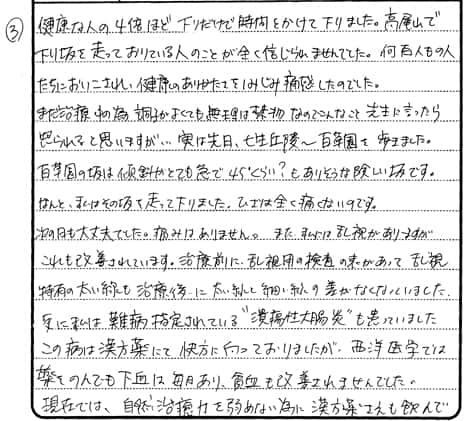 ③
健康な人の4倍ほど下りだけで時間をかけて下りました。高尾山で
下り坂を走っており ている人のことが全く信じられませんでした。何百人もの人
たちにおいこされ、健康のありがたさをしみじみ痛感したのでした。
まだ治療中の為、調子がよくても無理は禁物なのでこんなこと先生に言ったら
怒られると思いますが… 実は先日、七生丘陵〜百草園を歩きました。
百草園の坂は傾斜がとても急で45°くらい?もありそうな険しい坂です。
なんと、私はその坂を走って下りました。ひざは全く痛くないのです。
次の日も大丈夫でした。痛みはありません。また、私には乱視がありますが
これも改善されています。治療前に、乱視用の検査の表があって乱視
特有の太い線も治療後に太い線と細い線の差がなくなりました。
更に私は難病指定されている"潰瘍性大腸炎"も患っていました
この病は漢方薬にて快方に向っておりましたが、西洋医学では
薬をのんでも下血は毎日あり、貧血も改善されませんでした。
現在では、自然治癒力を弱めない為に漢方薬さえも飲んで